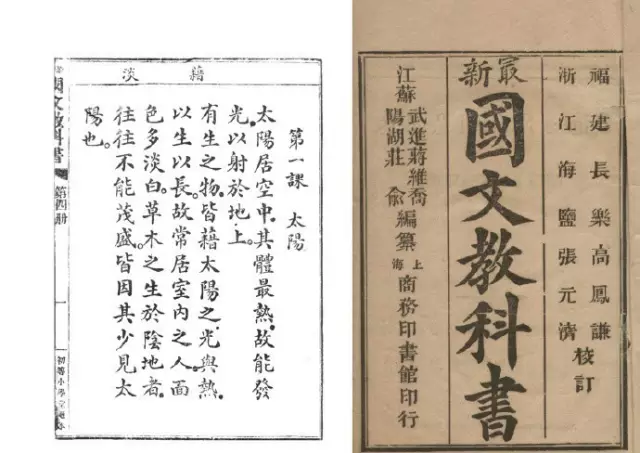 藉 淡
第一課 太陽
太陽居空中。其體最熱。故能發
光以射於地上。
有生之物。皆藉太陽之光與熱。
以生以長。故常居室內之人。面
色多淡白。草木之生於陰地者。
往往不能茂盛。皆因其少見太
陽也。
國文教科書
第四册
初等小學
福建長樂高鳳謙
浙江海鹽張元濟
校訂
最新
國文教科書
江蘇
武進蔣維喬
陽湖莊俞
編纂
上海
商務印書館印行